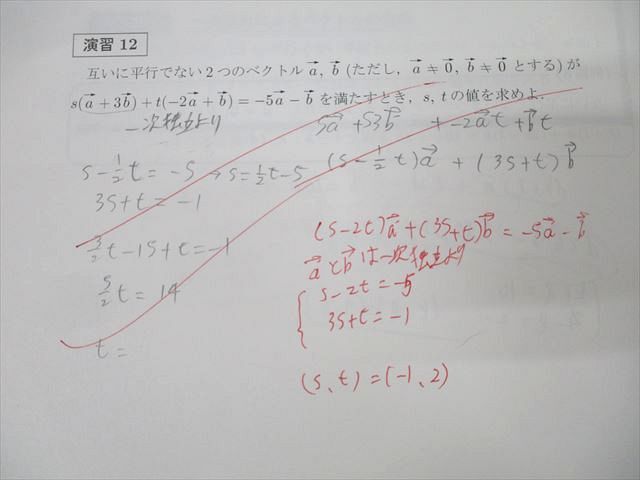 演習 12
互いに平行でない2つのベクトル a→, b→ (ただし, a→ ≠ 0→, b→ ≠ 0→ とする) が
s(a→ + 3b→) + t(−2a→ + b→) = −5a→ − b→ を満たすとき, s, t の値を求めよ.
一次独立より
sa→ + s3b→ + −2a→t + b→t
s − 1/2 t = −5 → s = 1/2 t − 5
(s − 1/2 t)a→ + (3s + t)b→
3s + t = −1
3/2 t − 15 + t = −1
5/2 t = 14
t =
(s − 2t)a→ + (3s + t)b→ = −5a→ − b→
a→ と b→ は一次独立より
s − 2t = −5
3s + t = −1
(s、t) = (−1、2)